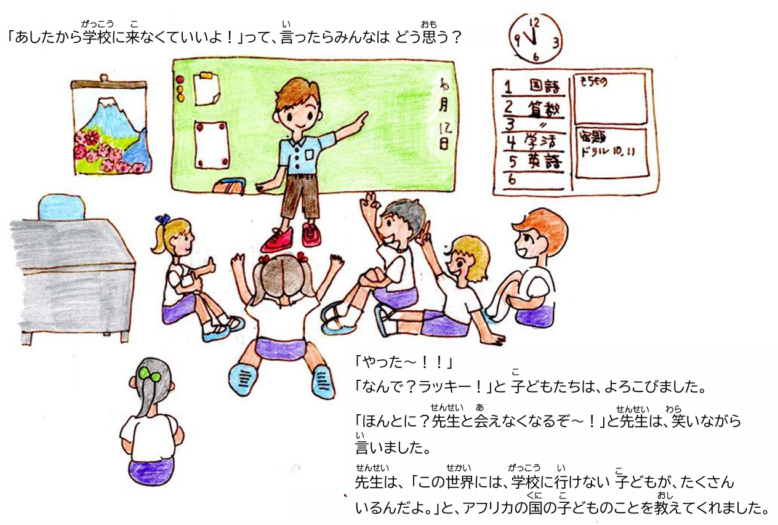 「あしたから学校に来なくていいよ！」って、言ったらみんなは どう思う？
12
9 3
6
1 国語
2 算数
3 〃
4 学活
5 英語
6
もちもの
宿題
ドリル 10, 11
月12日
「やった～！！」
「なんで？ラッキー！」と 子どもたちは、よろこびました。
「ほんとに？先生と会えなくなるぞ～！」と先生は、笑いながら
言いました。
先生は、「この世界には、学校に行けない 子どもが、たくさん
いるんだよ。」と、アフリカの国の子どものことを教えてくれました。